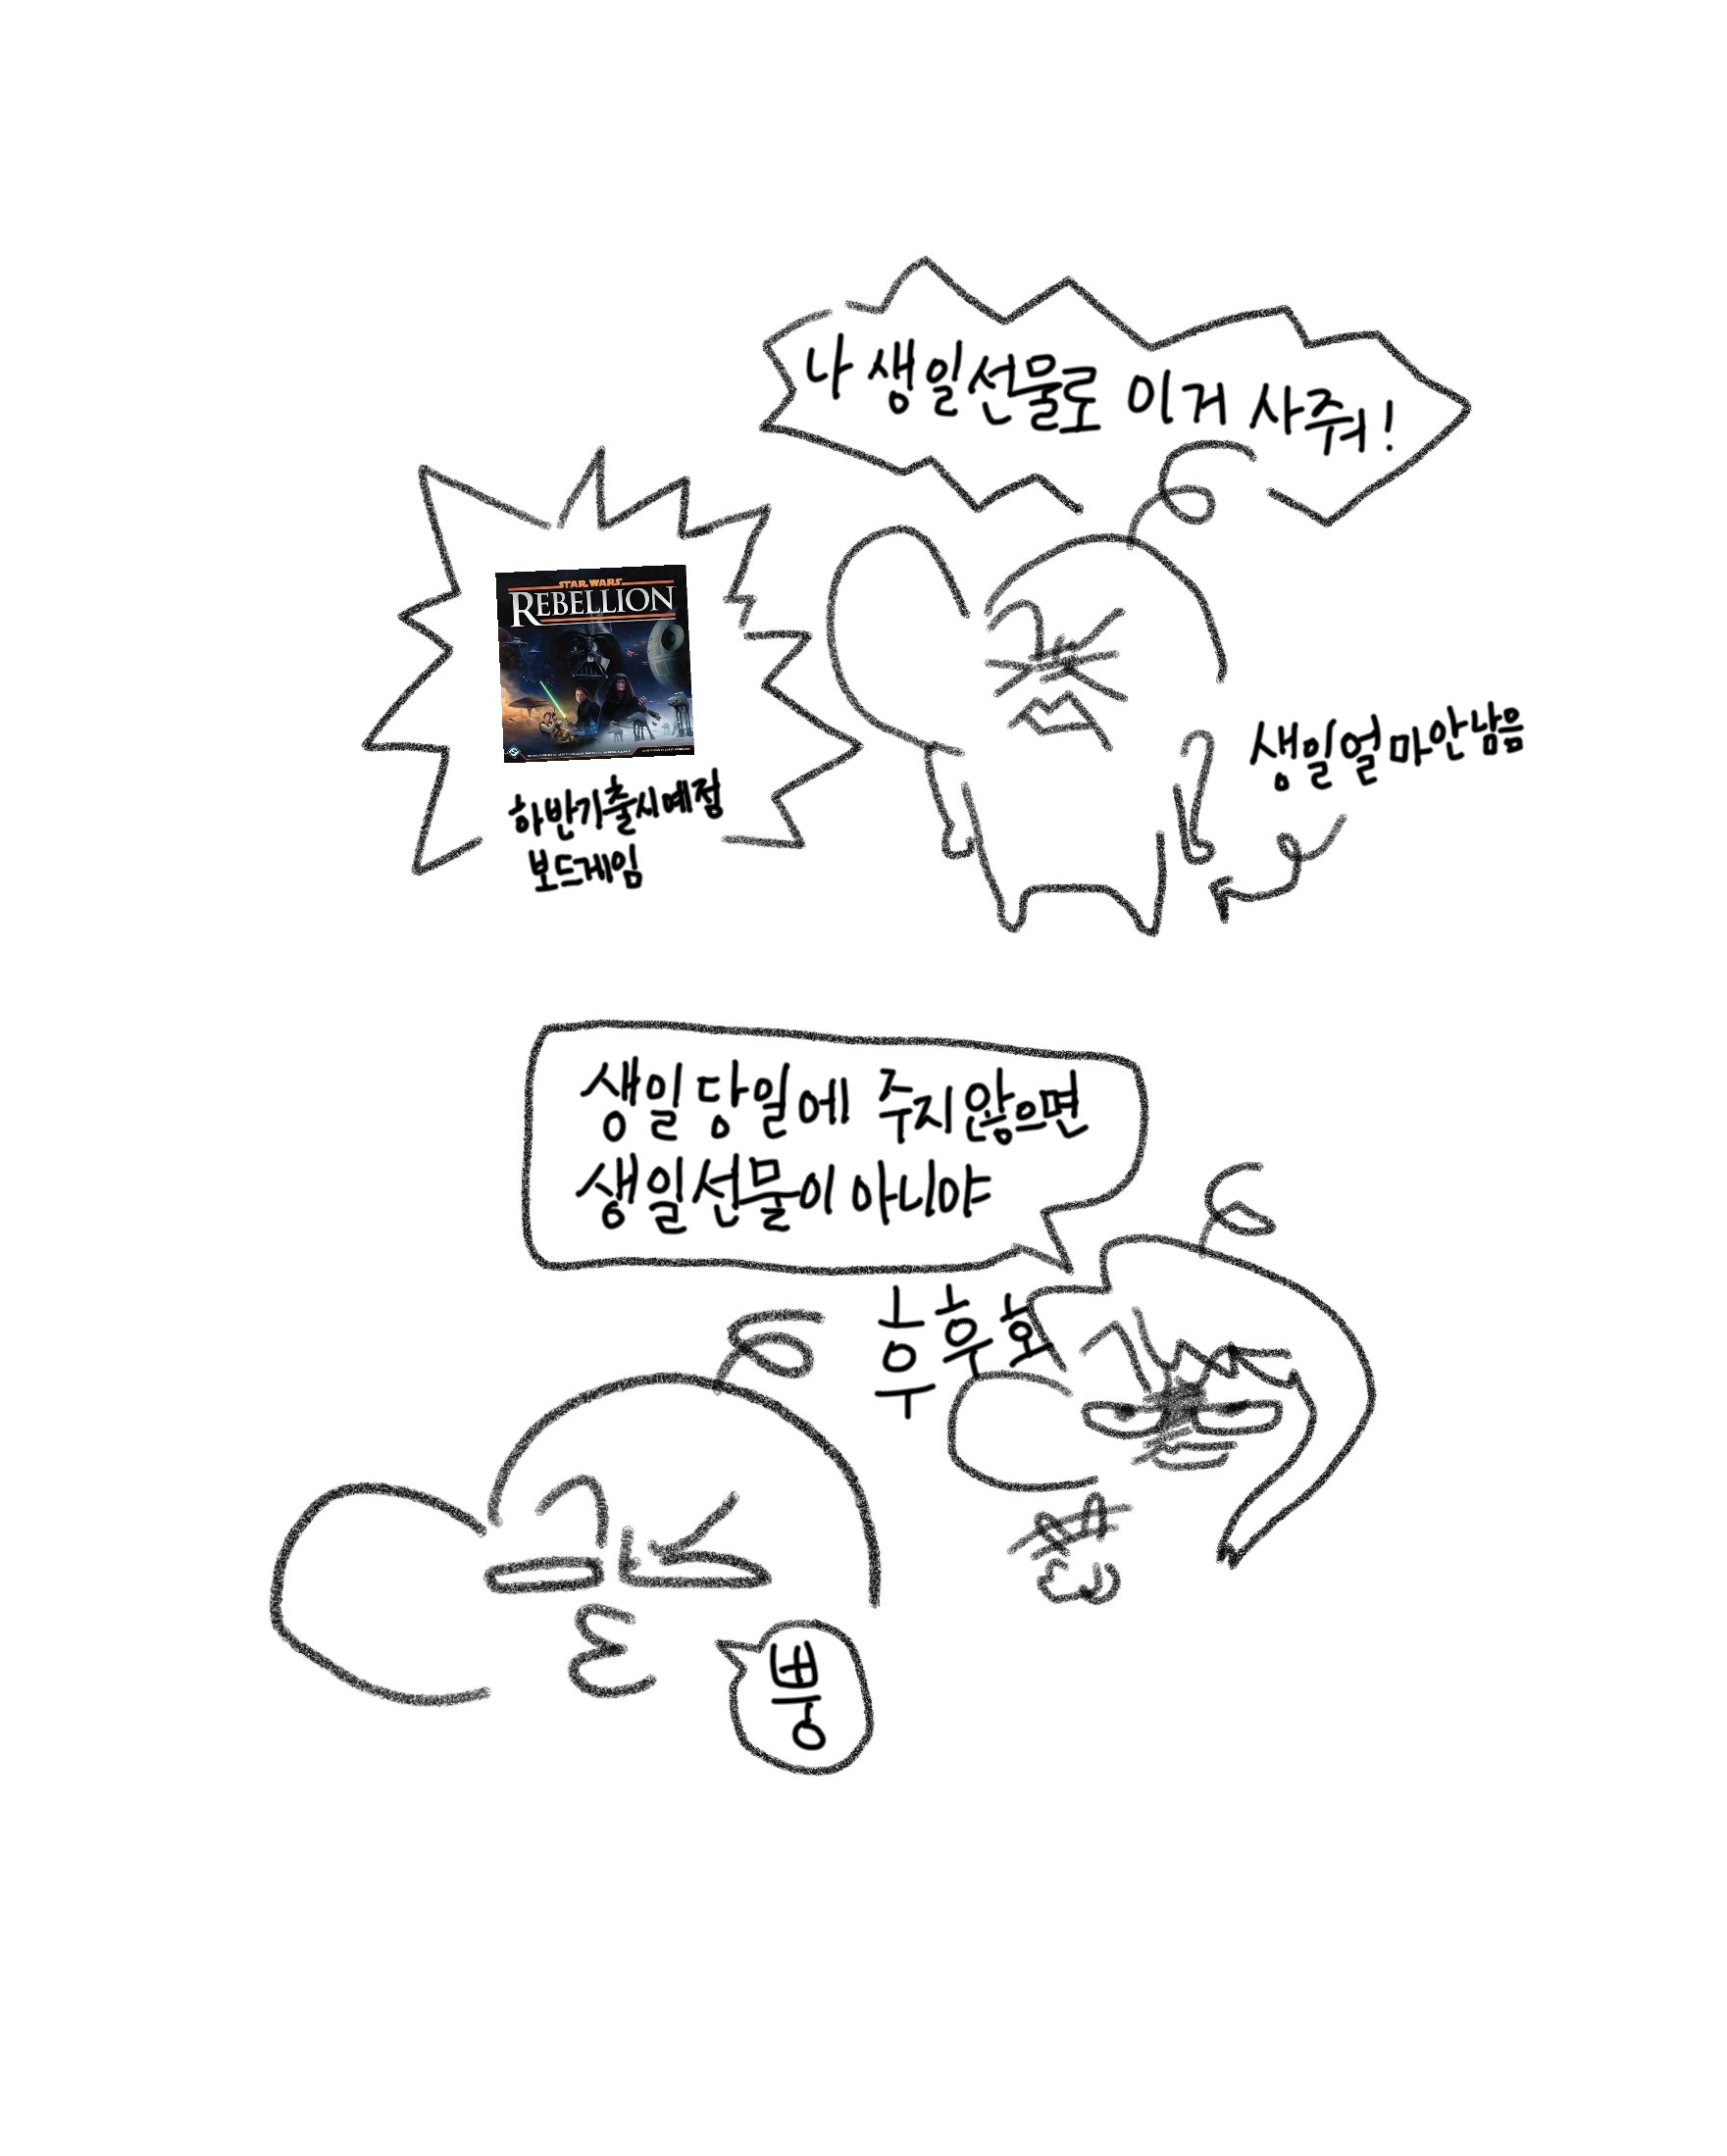 나 생일선물로 이거 사줘!
STAR WARS
REBELLION
하반기출시예정
보드게임
생일얼마안남음
생일 당일에 주지않으면
생일선물이 아니야
흐후회
뿡